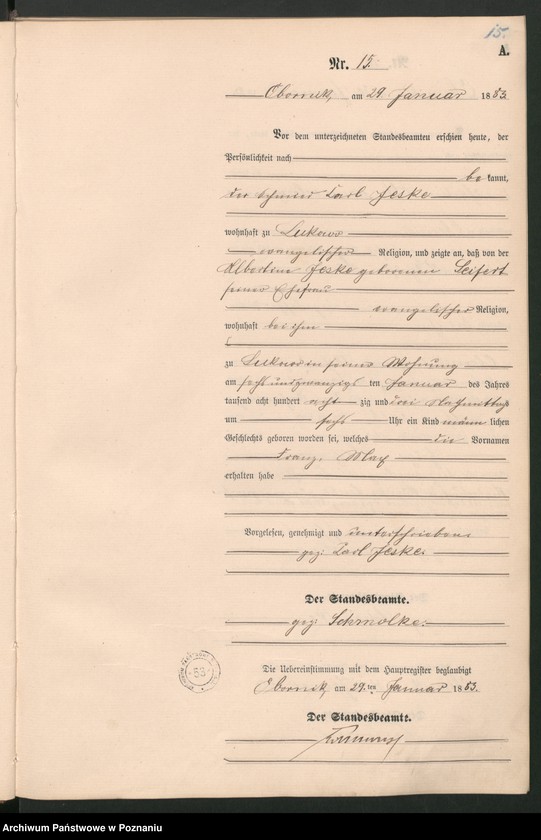 15.
A.
Nr. 15.
Obornik, am 29 Januar 1883
Vor dem unterzeichneten Standesbeamten erschien heute, der
Persönlichkeit nach
be kannt,
der Karl Jeske
wohnhaft zu Lukowo
evangelischer Religion, und zeigte an, daß von der
Albertine Jeske geborenen Seifert
seiner Ehefrau
evangelischer Religion,
wohnhaft bei ihm
zu in seiner Wohnung
am sechsundzwanzigsten ten Januar des Jahres
tausend acht hundert acht zig und drei Nachmittags
um sechs Uhr ein Kind männ lichen
Geschlechts geboren worden sei, welches die Vornamen
Franz, Max
erhalten habe
Vorgelesen, genehmigt und unterschrieben
gez: Karl Jeske.
Der Standesbeamte.
gez: Schmolke.
Die Uebereinstimmung mit dem Hauptregister beglaubigt
Obornik, am 29.ten Januar 1883.
Der Standesbeamte.
53
Archiwum Państwowe w Poznaniu